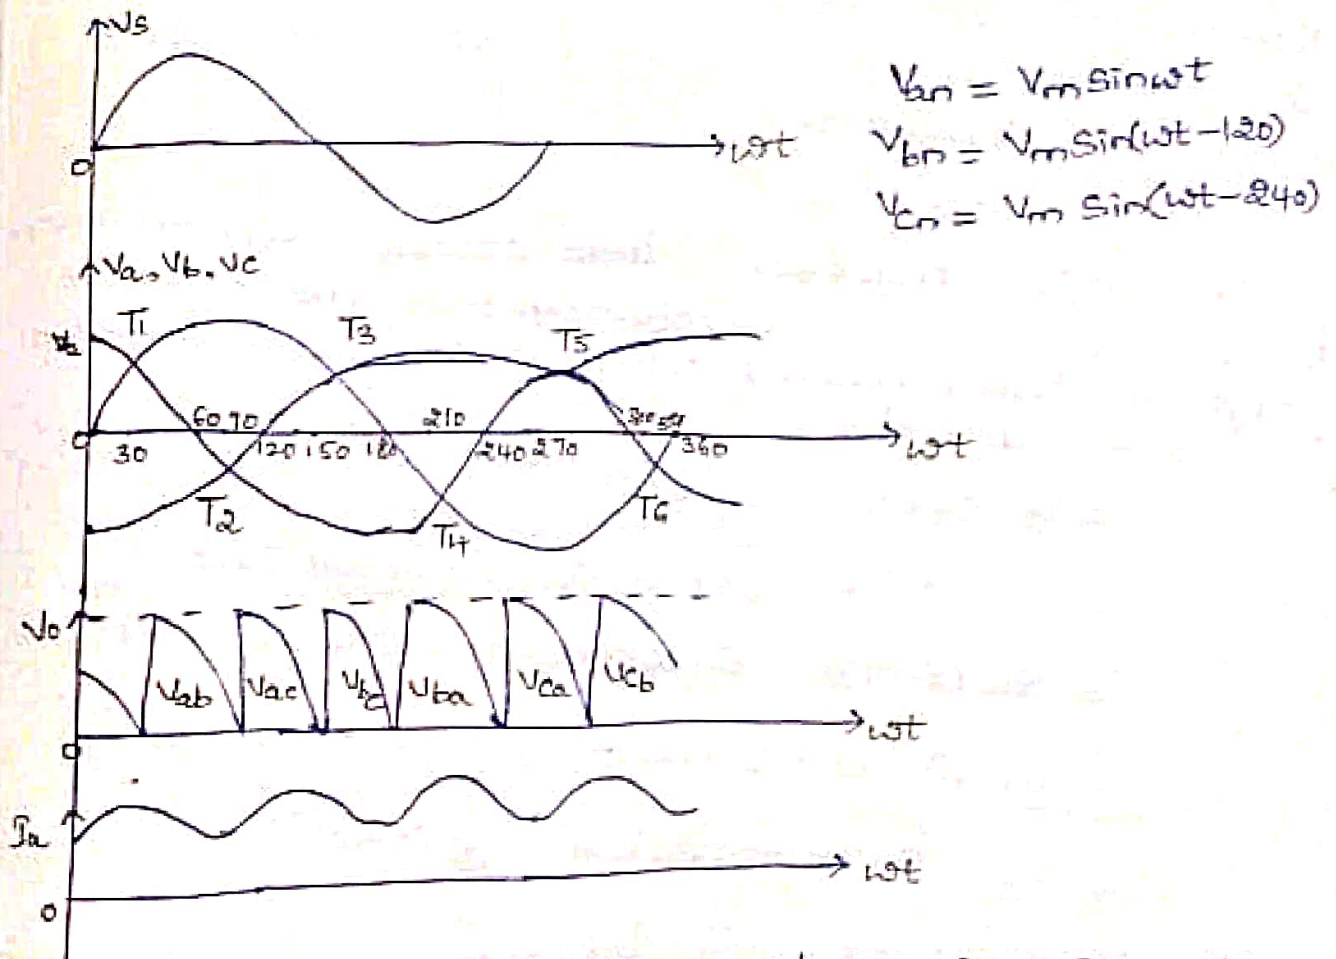 Vs
ωt
0
Van = Vm sinωt
Vbn = Vm sin(ωt-120)
Vcn = Vm sin(ωt-240)
Va, Vb, Vc
T1 T3 T5
0 30 60 90 120 150 180 210 240 270 360
ωt
T2 T4 T6
V0
Vab Vac Vbc Vba Vca Vcb
0
ωt
Ia
ωt
0